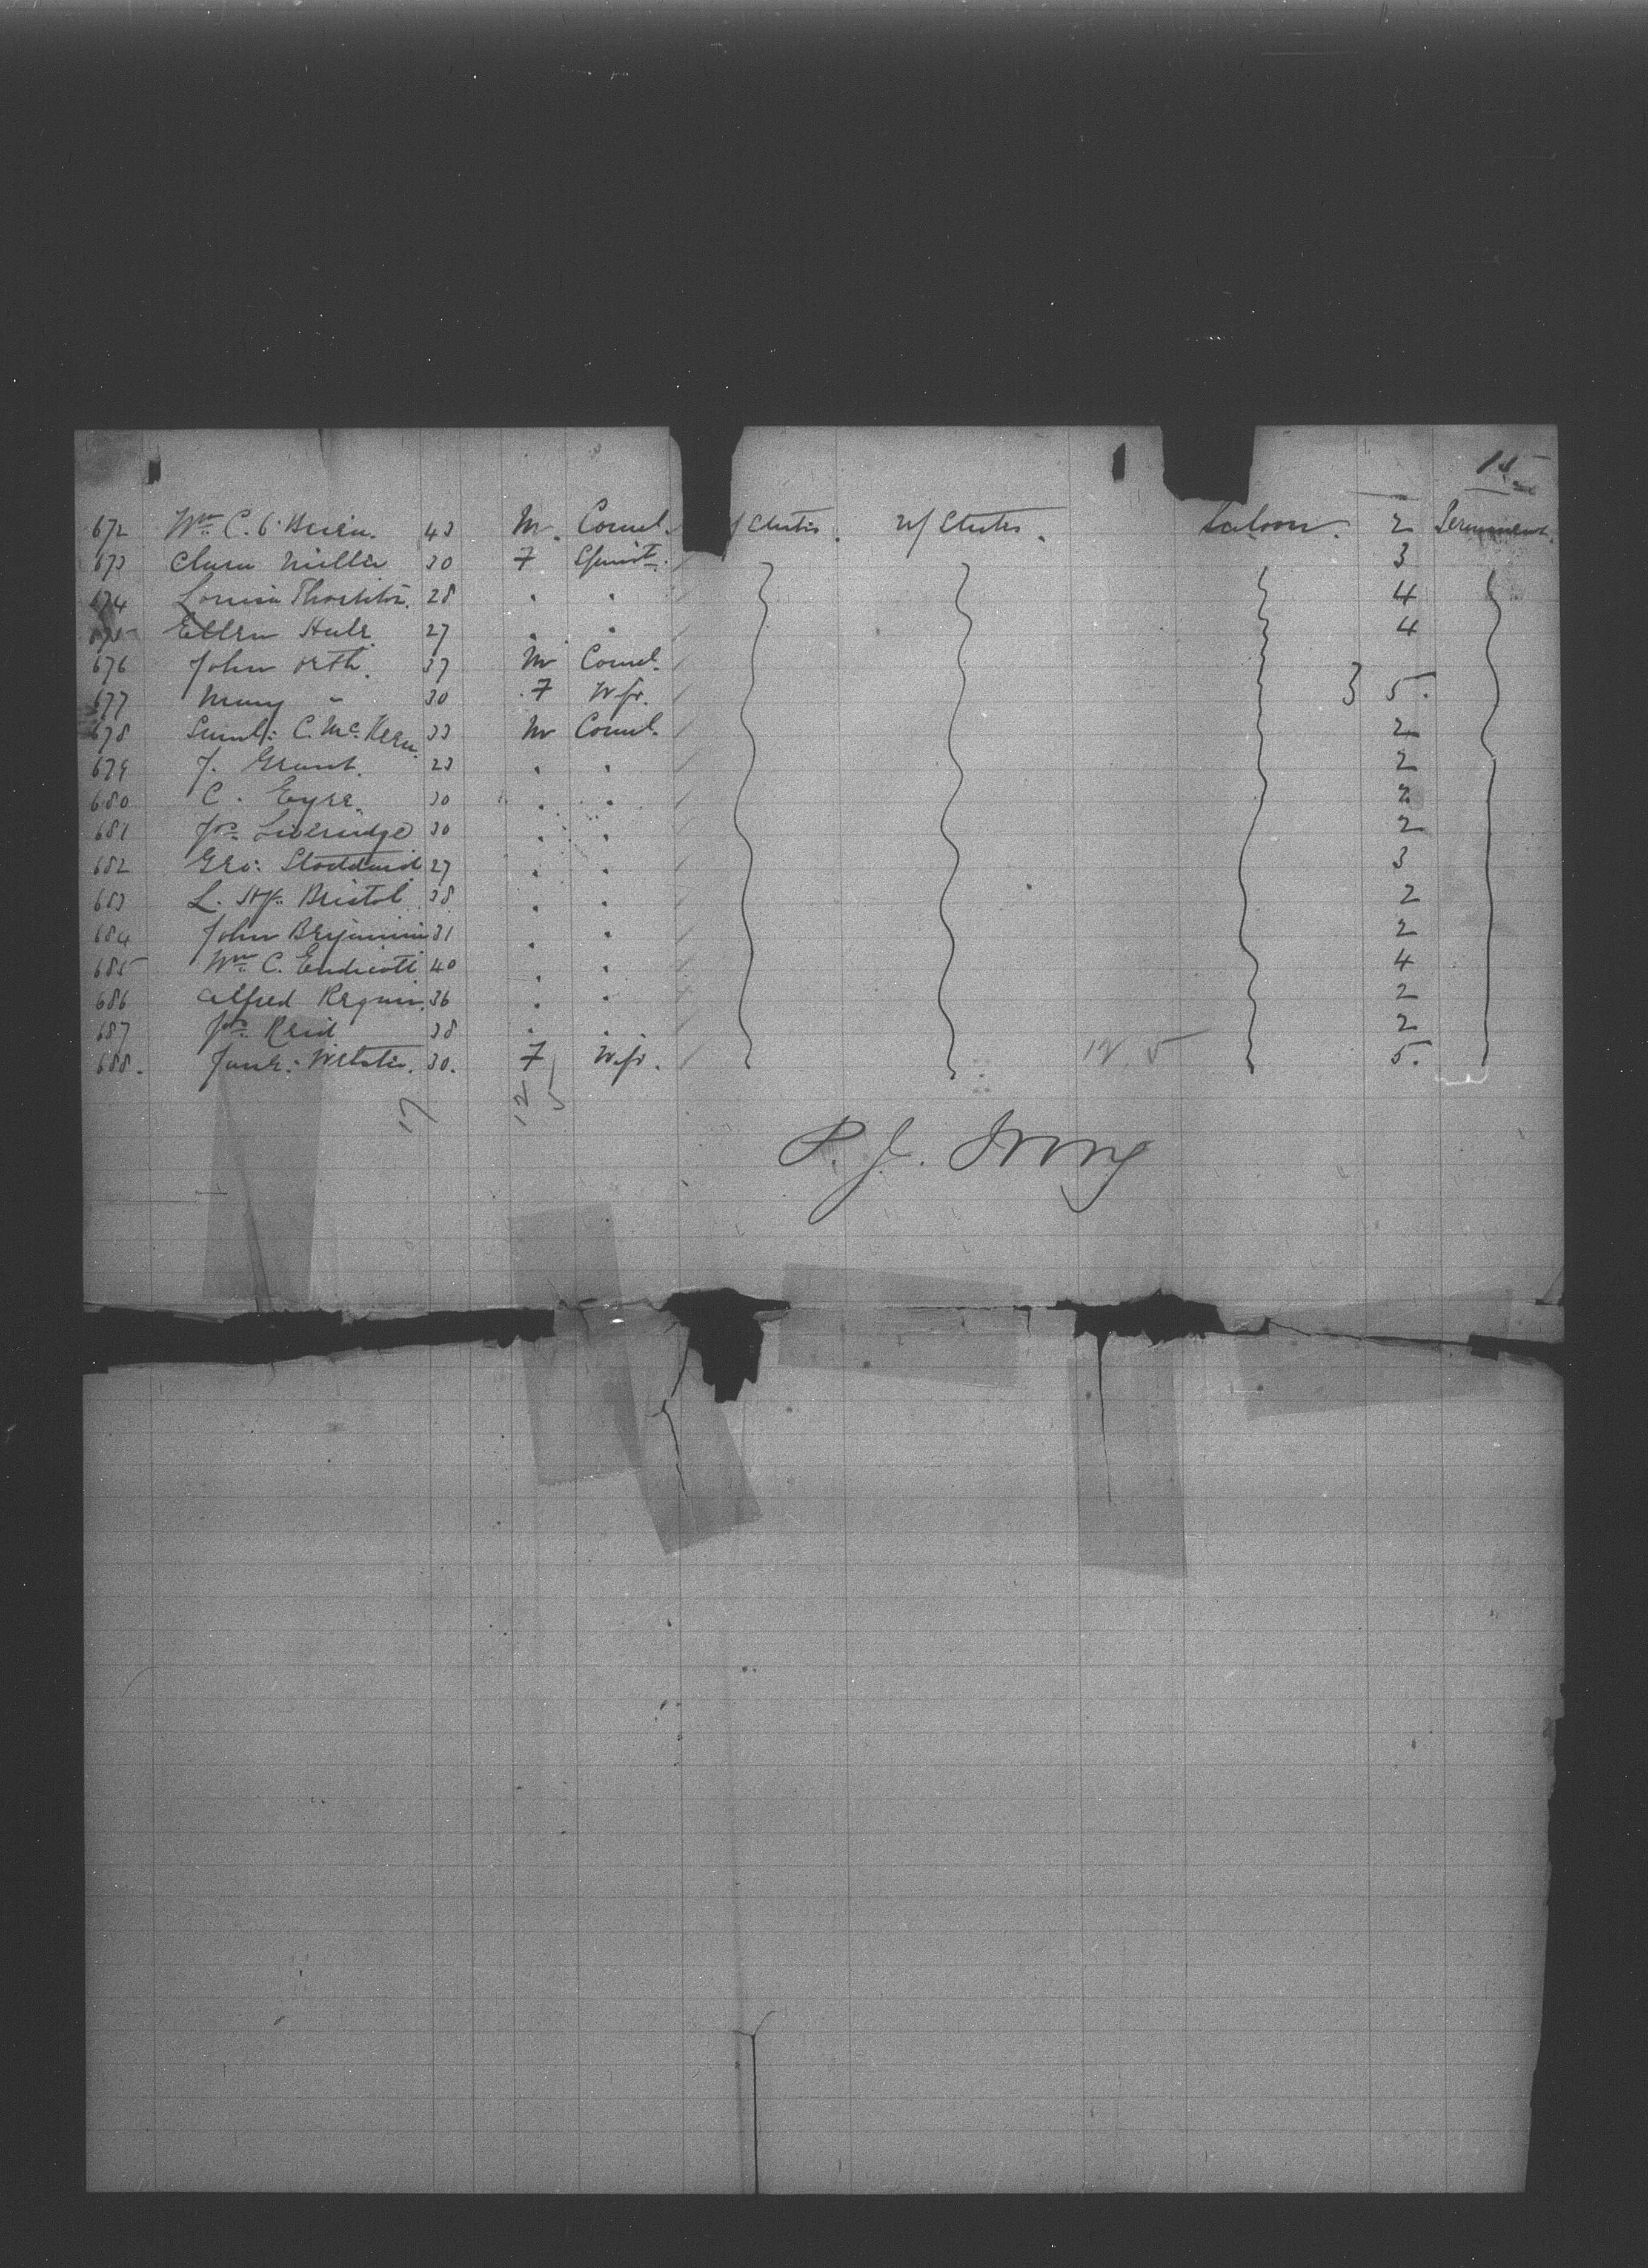 15
672 Wm. C. O'Brien. 43 M. Coml. / States. U/ States. Saloon. 2 Permanent.
673 Clara Miller 30 F Spinst. 3
674 Louisa 28 " " 4
675 Ellen Hale 27 " " 4
676 John Orth. 37 M Coml.
677 Mary " 30 F Wfe. } 5.
678 Saml: C. McKern 33 M Coml. 2
679 J. Grant. 23 " " 2
680 C. Eyre. 30 " " 2
681 Jos. Liveridge 30 " " 2
682 Geo: Stoddard 27 " " 3
683 L. Bristol 38 " " 2
684 John Benjamin 31 " " 2
685 Wm. C. Endicott 40 " " 4
686 Alfred 36 " " 2
687 Reid 38 " " 2
688. Jane: Webster. 30. F Wfe. 12 5 5.
17 12 5
P. J. Irving